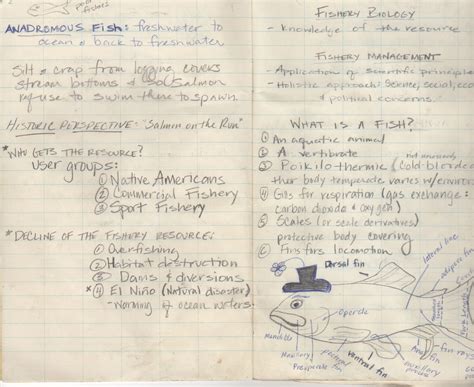 pectoral fishes
ANADROMOUS FISH: freshwater to
ocean & back to freshwater
Silt & crap from logging covers
stream bottoms & salmon
refuse to swim there to spawn.
HISTORIC PERSPECTIVE: "Salmon on the Run"
*WHO GETS THE RESOURCE?
user groups:
① Native Americans
② Commercial Fishery
③ Sport Fishery
*DECLINE OF THE FISHERY RESOURCE:
① Overfishing
② Habitat destruction
③ Dams & diversions
*④ El Niño (Natural disaster)
-Warming of ocean waters
FISHERY BIOLOGY
- Knowledge of the resource
FISHERY MANAGEMENT
- Application of scientific principles
- Holistic approach: Science, social, eco
& political concerns.
WHAT IS A FISH?
① An aquatic animal
② A vertibrate
not necessarily
③ Poikilothermic (Cold blooded
ther body temperate varies w/environ
④ Gills for respiration (gas exchange:
carbon dioxide & oxygen)
⑤ Scales (or scale derivatives)
protective body covering
⑥ Fins for locomotion
Dorsal fin
lateral line
adipose fin
Opercle
Mandible
Maxillary
Preopercle
Pectoral fin
ventral fin
Anal fin
fin rays